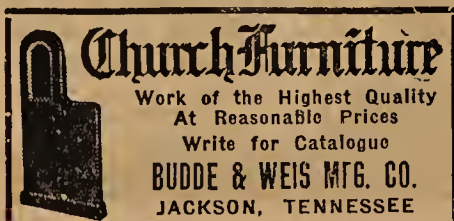 Church Furniture
Work of the Highest Quality
At Reasonable Prices
Write for Catalogue
BUDDE & WEIS MFG. CO.
JACKSON, TENNESSEE